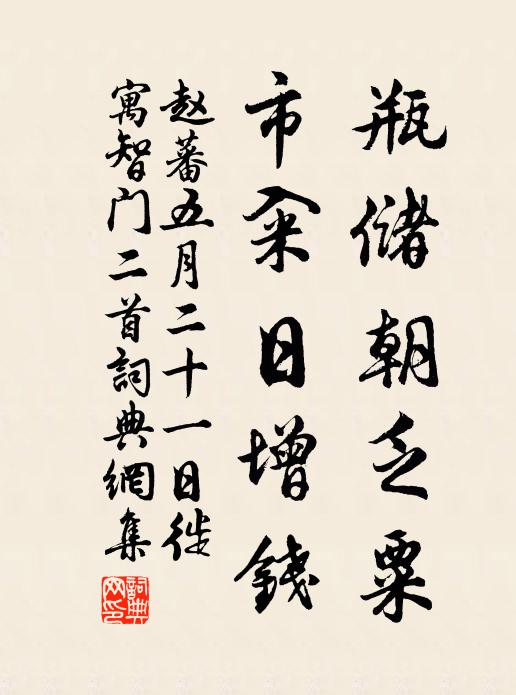 瓶儲朝乏粟
市籴日增錢
赵蕃五月二十一日徙
寓智门二首詞典網集
詞典网印